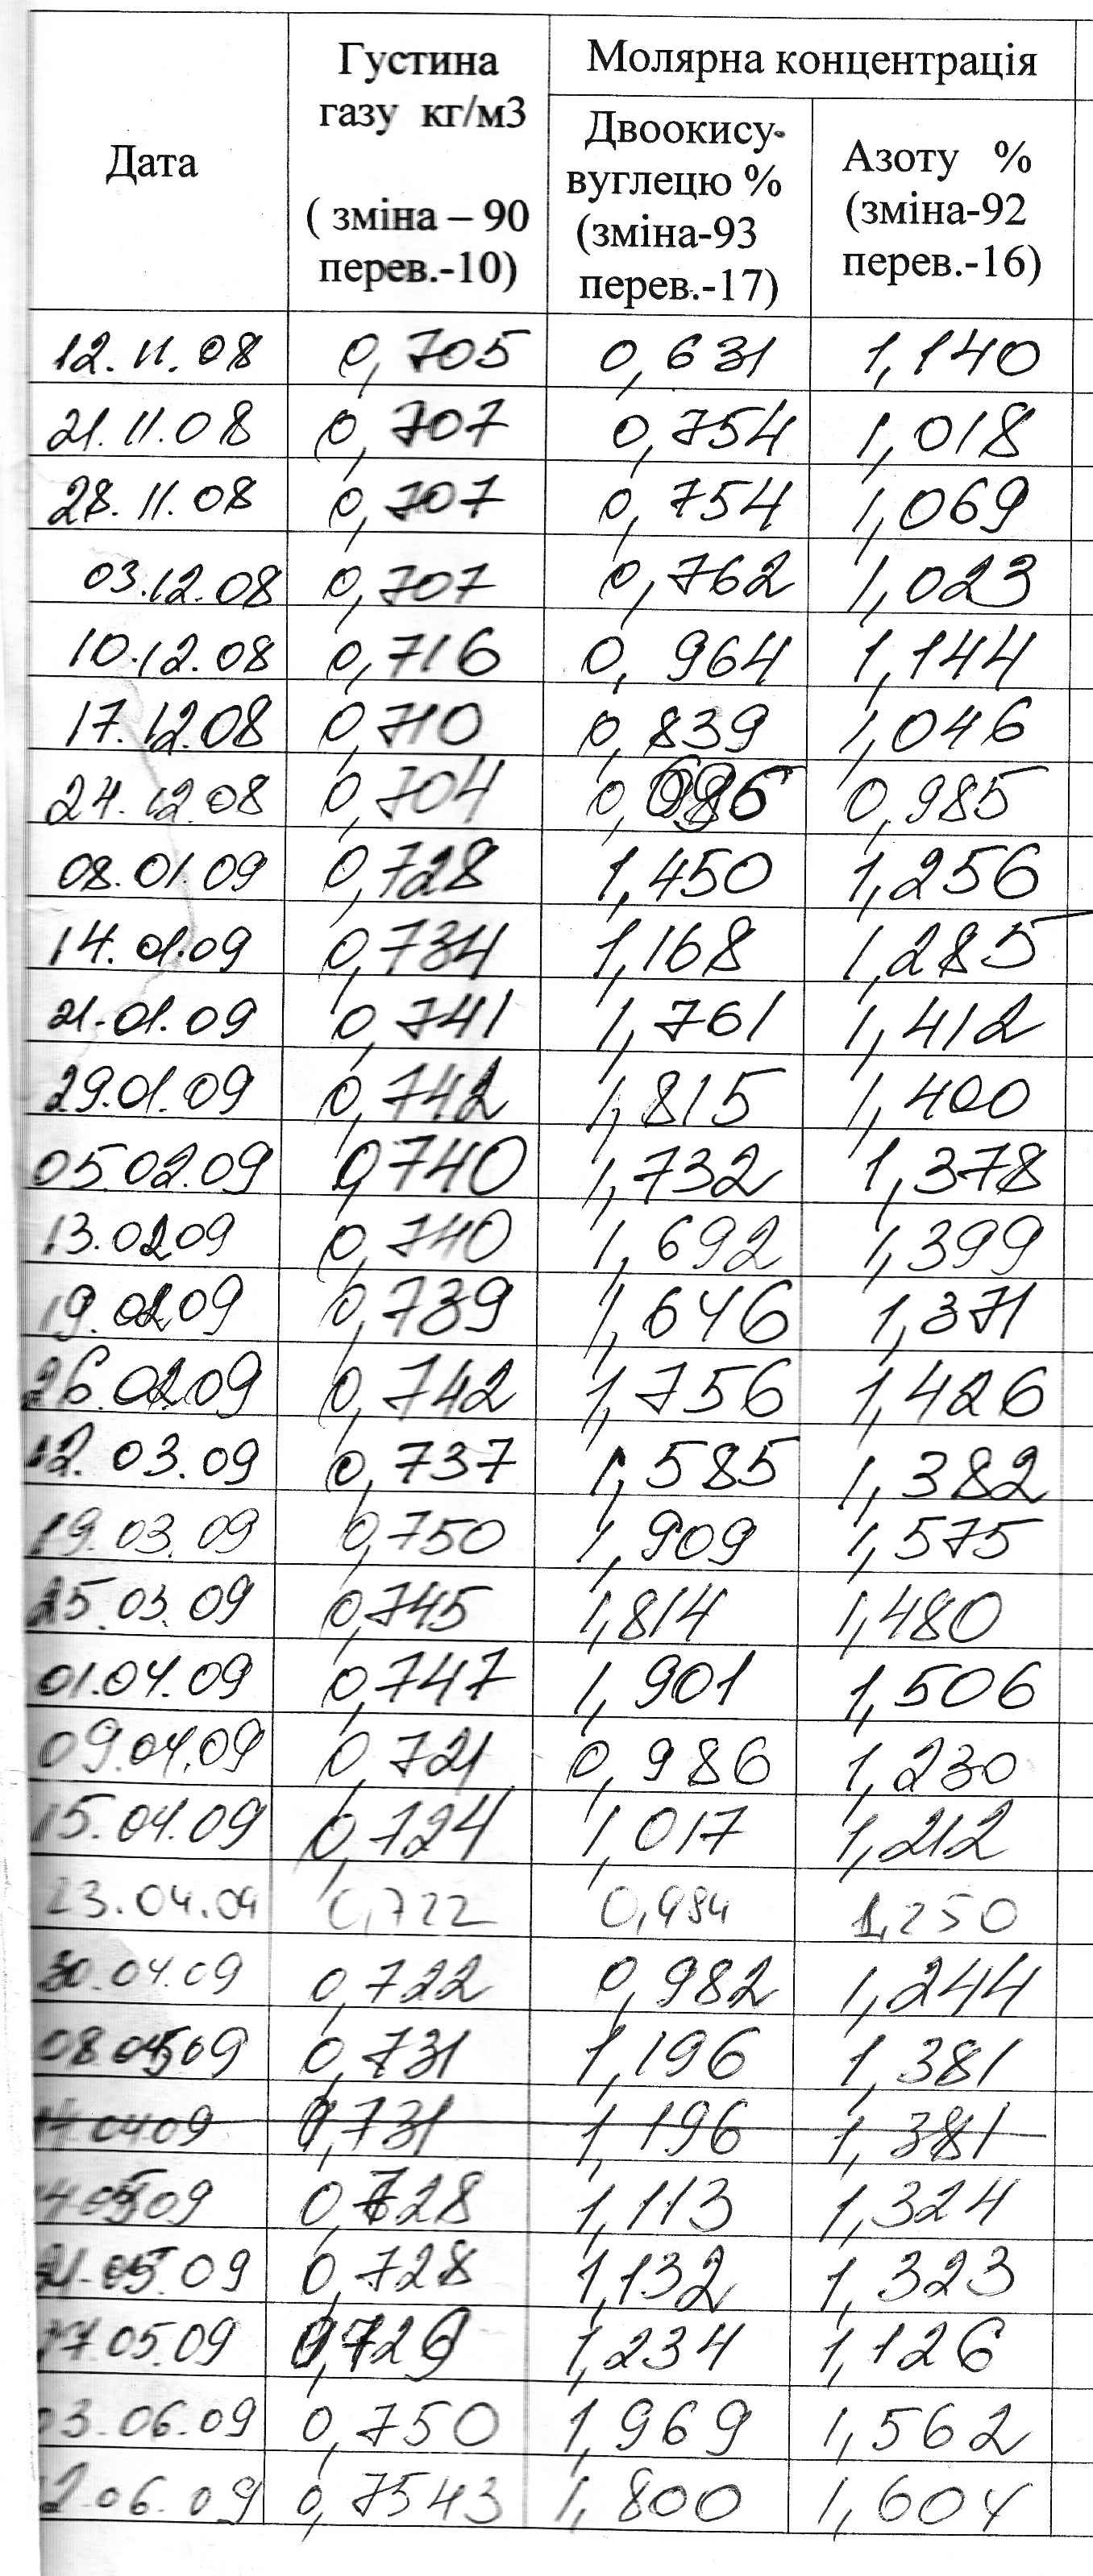 Дата
Густина
газу кг/м3
( зміна – 90
перев.-10)
Молярна концентрація
Двоокису-
вуглецю %
(зміна-93
перев.-17)
Азоту %
(зміна-92
перев.-16)
12.11.08 0,705 0,631 1,140
21.11.08 0,707 0,754 1,018
28.11.08 0,707 0,754 1,069
03.12.08 0,707 0,762 1,023
10.12.08 0,716 0,964 1,144
17.12.08 0,710 0,839 1,046
24.12.08 0,704 0,985
08.01.09 0,728 1,450 1,256
14.01.09 0,734 1,168 1,285
21.01.09 0,741 1,761 1,412
29.01.09 0,742 1,815 1,400
05.02.09 0,740 1,732 1,378
13.02.09 0,740 1,692 1,399
19.02.09 0,739 1,646 1,371
26.02.09 0,742 1,756 1,426
12.03.09 0,737 1,585 1,382
19.03.09 0,750 1,909 1,575
25.03.09 0,745 1,814 1,480
01.04.09 0,747 1,901 1,506
09.04.09 0,721 0,986 1,230
15.04.09 0,724 1,017 1,212
23.04.09 0,722 1,250
30.04.09 0,722 0,982 1,244
08.05.09 0,731 1,196 1,381
0,731 1,196 1,381
0,728 1,113 1,324
21.05.09 0,728 1,132 1,323
27.05.09 0,729 1,234 1,126
03.06.09 0,750 1,969 1,562
12.06.09 0,7543 1,800 1,604